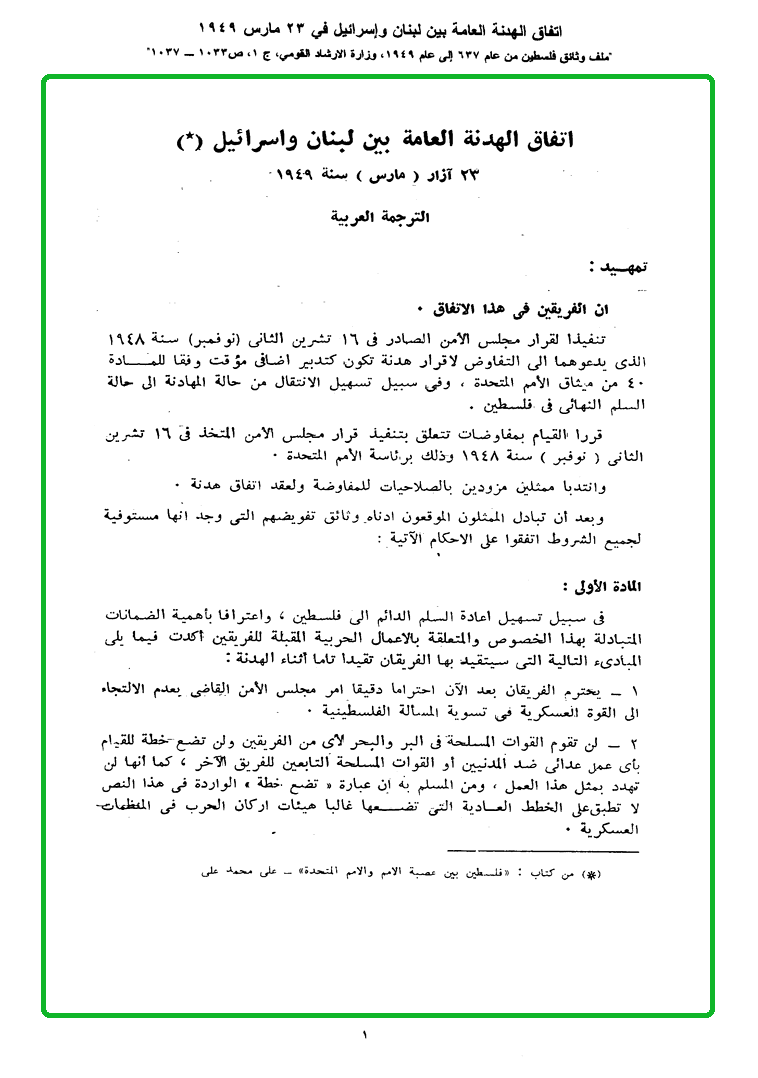 اتفاق الهدنة العامة بين لبنان وإسرائيل في ٢٣ مارس ١٩٤٩
"ملف وثائق فلسطين من عام ٦٣٧ إلى عام ١٩٤٩، وزارة الارشاد القومي، ج ١، ص١٠٣٣ – ١٠٣٧"
اتفاق الهدنة العامة بين لبنان واسرائيل (*)
٢٣ آزار ( مارس ) سنة ١٩٤٩
الترجمة العربية
تمهـــيد :
ان الفريقين فى هذا الاتفاق ٠
تنفيذا لقرار مجلس الأمن الصادر فى ١٦ تشرين الثانى (نوفمبر) سنة ١٩٤٨
الذى يدعوهما الى التفاوض لاقرار هدنة تكون كتدبير اضافى مؤقت وفقا للمـــادة
٤٠ من ميثاق الأمم المتحدة ، وفى سبيل تسهيل الانتقال من حالة المهادنة الى حالة
السلم النهائى فى فلسطين .
قررا القيام بمفاوضات تتعلق بتنفيذ قرار مجلس الأمن المتخذ فى ١٦ تشرين
الثانى ( نوفبر ) سنة ١٩٤٨ وذلك برئاسة الأمم المتحدة ٠
وانتدبا ممثلين مزودين بالصلاحيات للمفاوضة ولعقد اتفاق هدنة ٠
وبعد أن تبادل الممثلون الموقعون ادناه وثائق تفويضهم التى وجد انها مستوفية
لجميع الشروط اتفقوا على الاحكام الآتية :
المادة الأولى :
فى سبيل تسهيل اعادة السلم الدائم الى فلسطين ، واعترافا بأهمية الضمانات
المتبادلة بهذا الخصوص والمتعلقة بالاعمال الحربية المقبلة للفريقين أكدت فيما يلى
المبادىء التالية التى سيتقيد بها الفريقان تقيدا تاما أثناء الهدنة :
١ – يحترم الفريقان بعد الآن احتراما دقيقا امر مجلس الأمن القاضى بعدم الالتجاء
الى القوة العسكرية فى تسوية المسألة الفلسطينية ٠
٢ – لن تقوم القوات المسلحة فى البر والبحر لأى من الفريقين ولن تضع خطة للقيام
بأى عمل عدائى ضد المدنيين أو القوات المسلحة التابعين للفريق الآخر ، كما أنها لن
تهدد بمثل هذا العمل ، ومن المسلم به ان عبارة « تضع خطة » الواردة فى هذا النص
لا تطبق على الخطط العـادية التى تضـــعها غالبا هيئات اركان الحرب فى المنظمات
العسكرية ٠
(*) من كتاب : «فلسطين بين عصبة الامم والامم المتحدة» – على محمد على
١